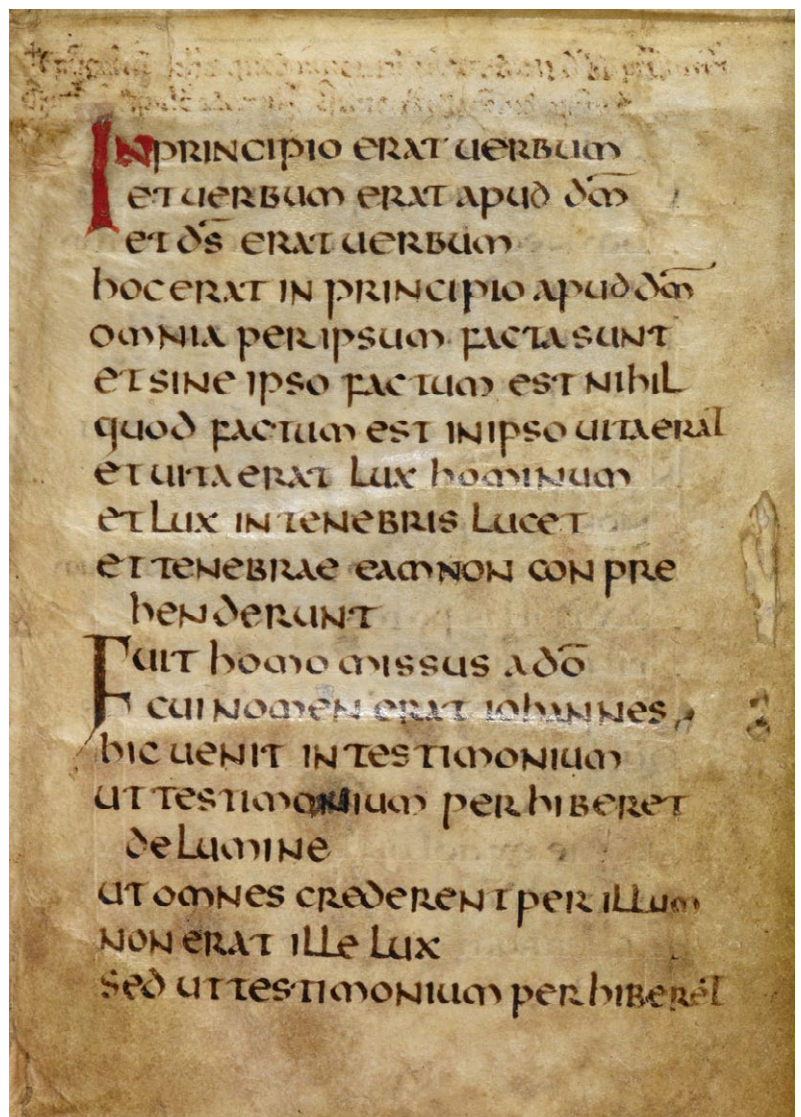 IN PRINCIPIO ERAT UERBUM
ET UERBUM ERAT APUD D̅M̅
ET D̅S̅ ERAT UERBUM
HOC ERAT IN PRINCIPIO APUD D̅M̅
OMNIA PER IPSUM FACTA SUNT
ET SINE IPSO FACTUM EST NIHIL
QUOD FACTUM EST IN IPSO UITA ERAT
ET UITA ERAT LUX HOMINUM
ET LUX IN TENEBRIS LUCET
ET TENEBRAE EAM NON CONPRE
HENDERUNT
FUIT HOMO MISSUS A D̅O̅
CUI NOMEN ERAT IOHANNES
HIC UENIT IN TESTIMONIUM
UT TESTIMONIUM PERHIBERET
DE LUMINE
UT OMNES CREDERENT PER ILLUM
NON ERAT ILLE LUX
SED UT TESTIMONIUM PERHIBERET